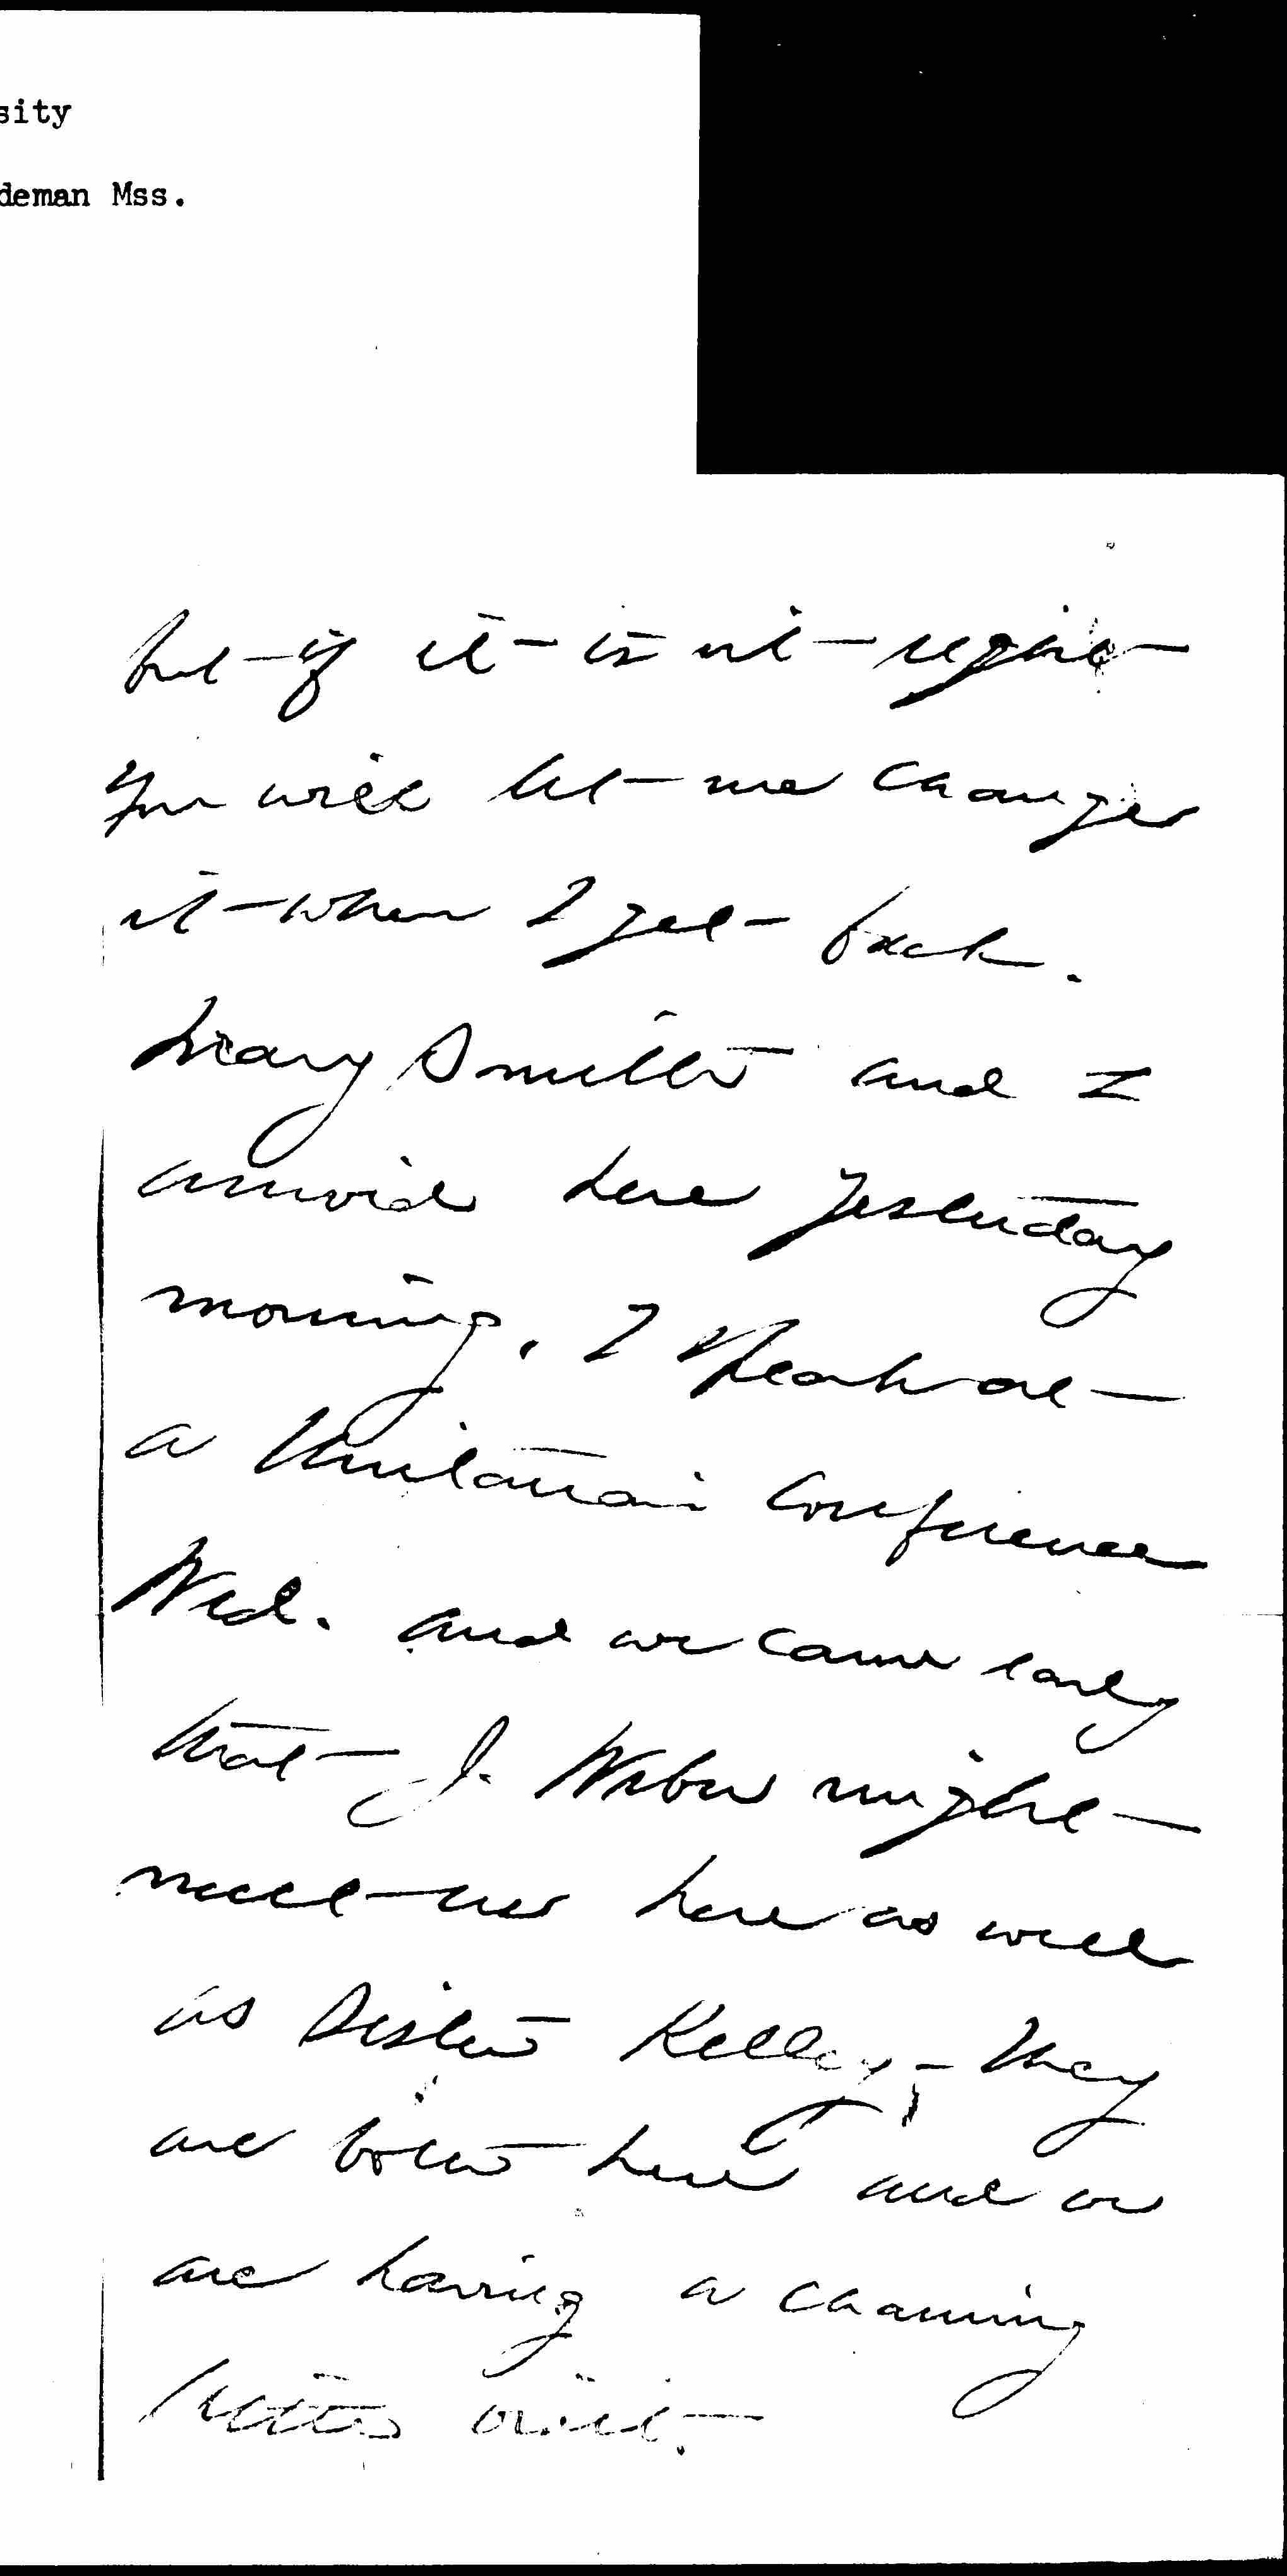 sity
deman Mss.
but if it isn't right
you will let me change
it when I get back.
Mary Smith and I
arrived here yesterday
morning. I speak at
a Unitarian Conference
Wed. and we came early
that J. Weber might
meet us here as well
as Sister Kelley, - They
are both here and we
are having a charming
little visit.